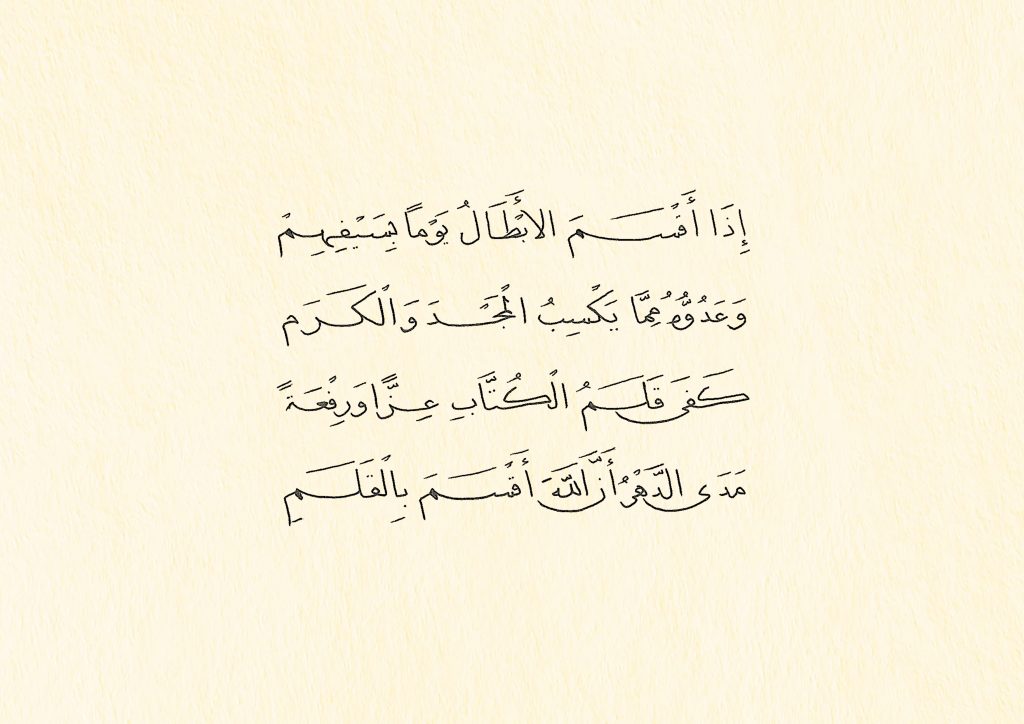 إِذَا أَقْسَمَ الأَبْطَالُ يَوْماً بِسَيْفِهِمْ
وَعَدُّوهُ مِمَّا يَكْسِبُ الْمَجْدَ وَالْكَرَم
كَفَى قَلَمُ الْكُتَّابِ عِزًّا وَرِفْعَةً
مَدَى الدَّهْرِ أَنَّ اللَّهَ أَقْسَمَ بِالْقَلَمِ